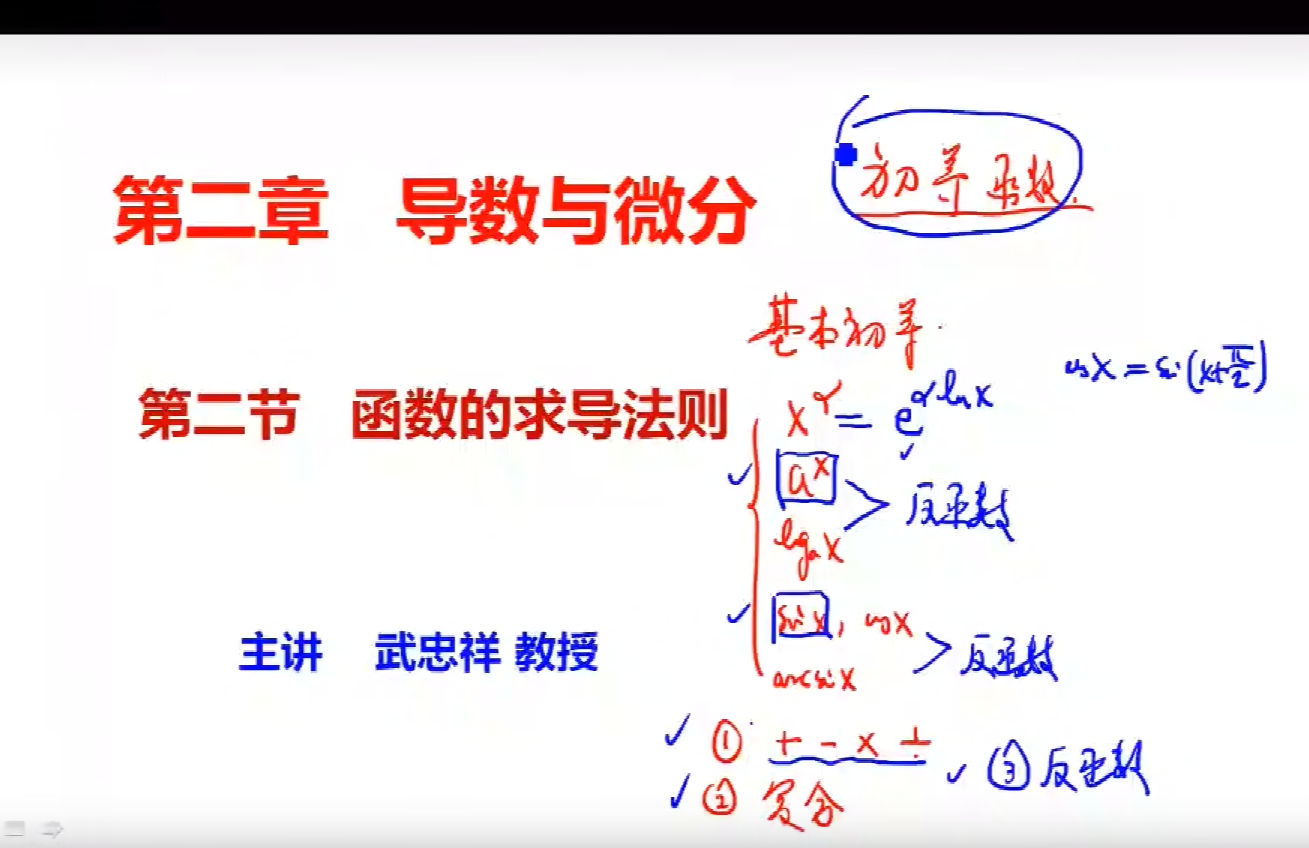 初等函数.
第二章 导数与微分
基本初等.
cosx = sin(x+π/2)
x^α = e^{αlnx}
第二节 函数的求导法则
a^x
反函数
log_a x
sinx, cosx
反函数
arcsinx
主讲 武忠祥 教授
① + - × ÷
③ 反函数
② 复合